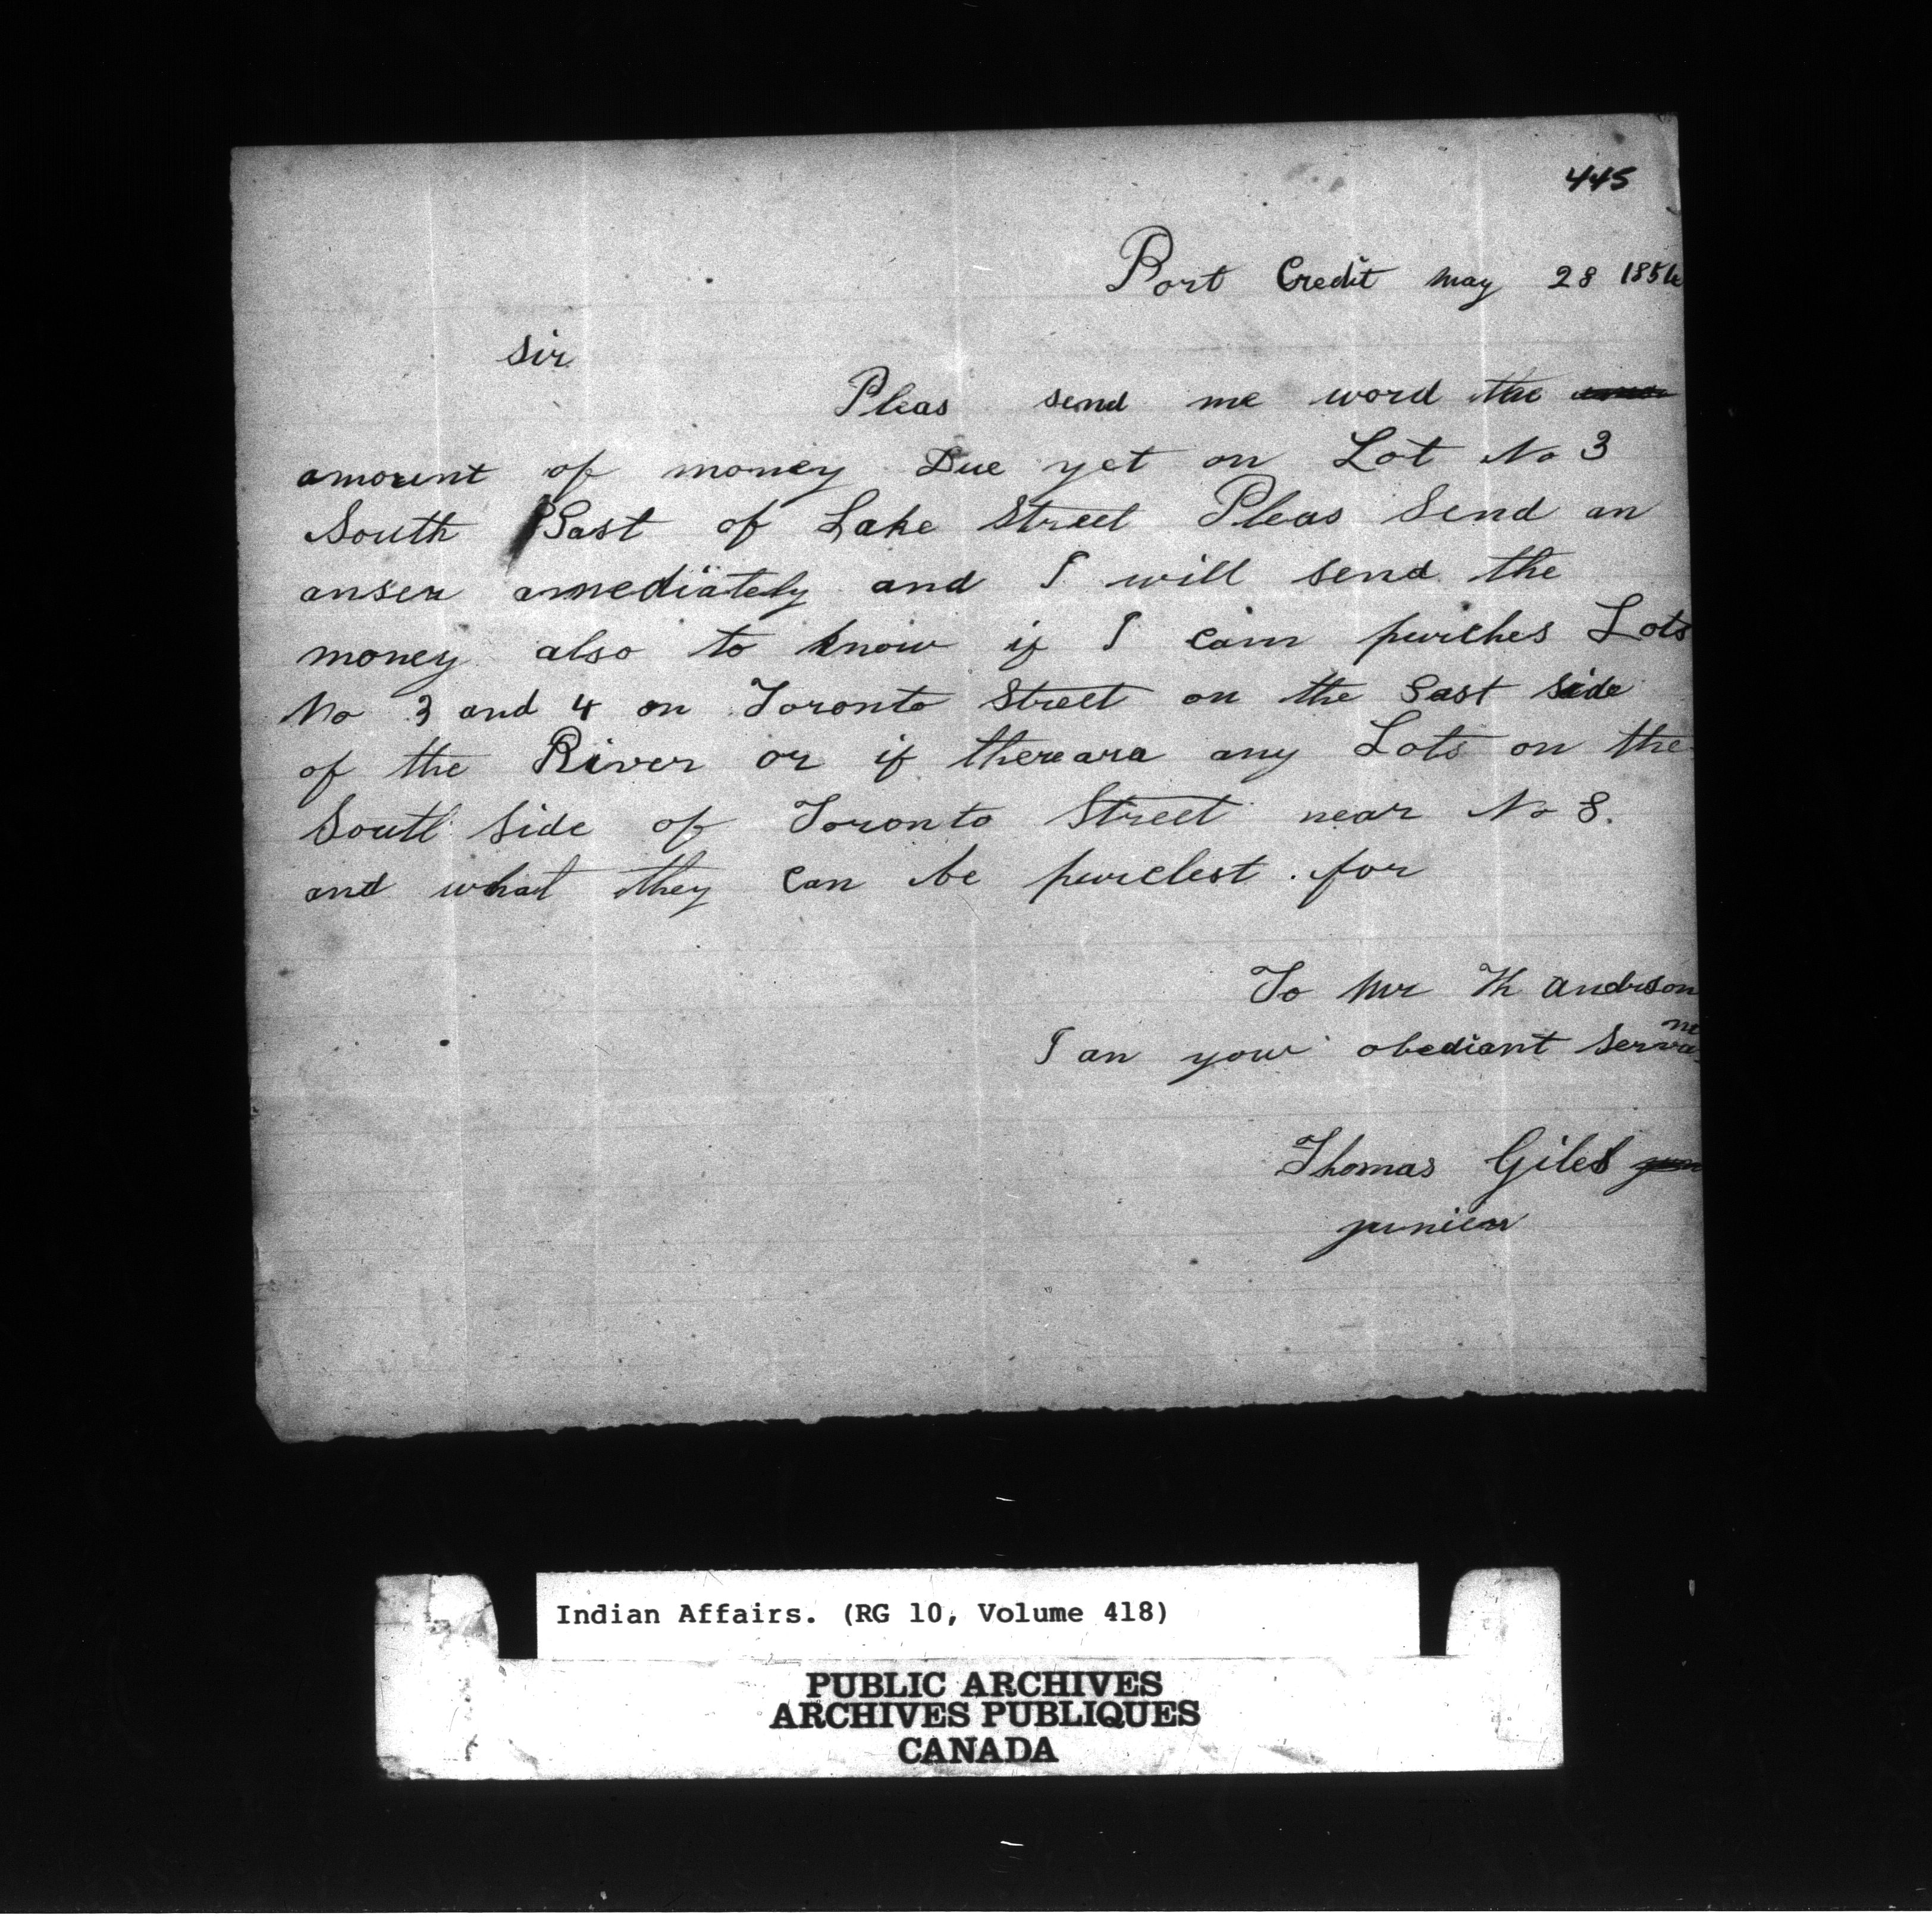 445
Port Credit may 28 1856
Sir
Pleas send me word the
amount of money Due yet on Lot No 3
South East of Lake Street Pleas Send an
anser amediately and I will send the
money also to know if I cann purches Lots
No 3 and 4 on Toronto Street on the East side
of the River or if thereara any Lots on the
South Side of Toronto Street near No 8.
and what they can be purclest for
To Mr Th andrson
I an your obediant Serva
Thomas Giles
junier
Indian Affairs. (RG 10, Volume 418)
PUBLIC ARCHIVES
ARCHIVES PUBLIQUES
CANADA